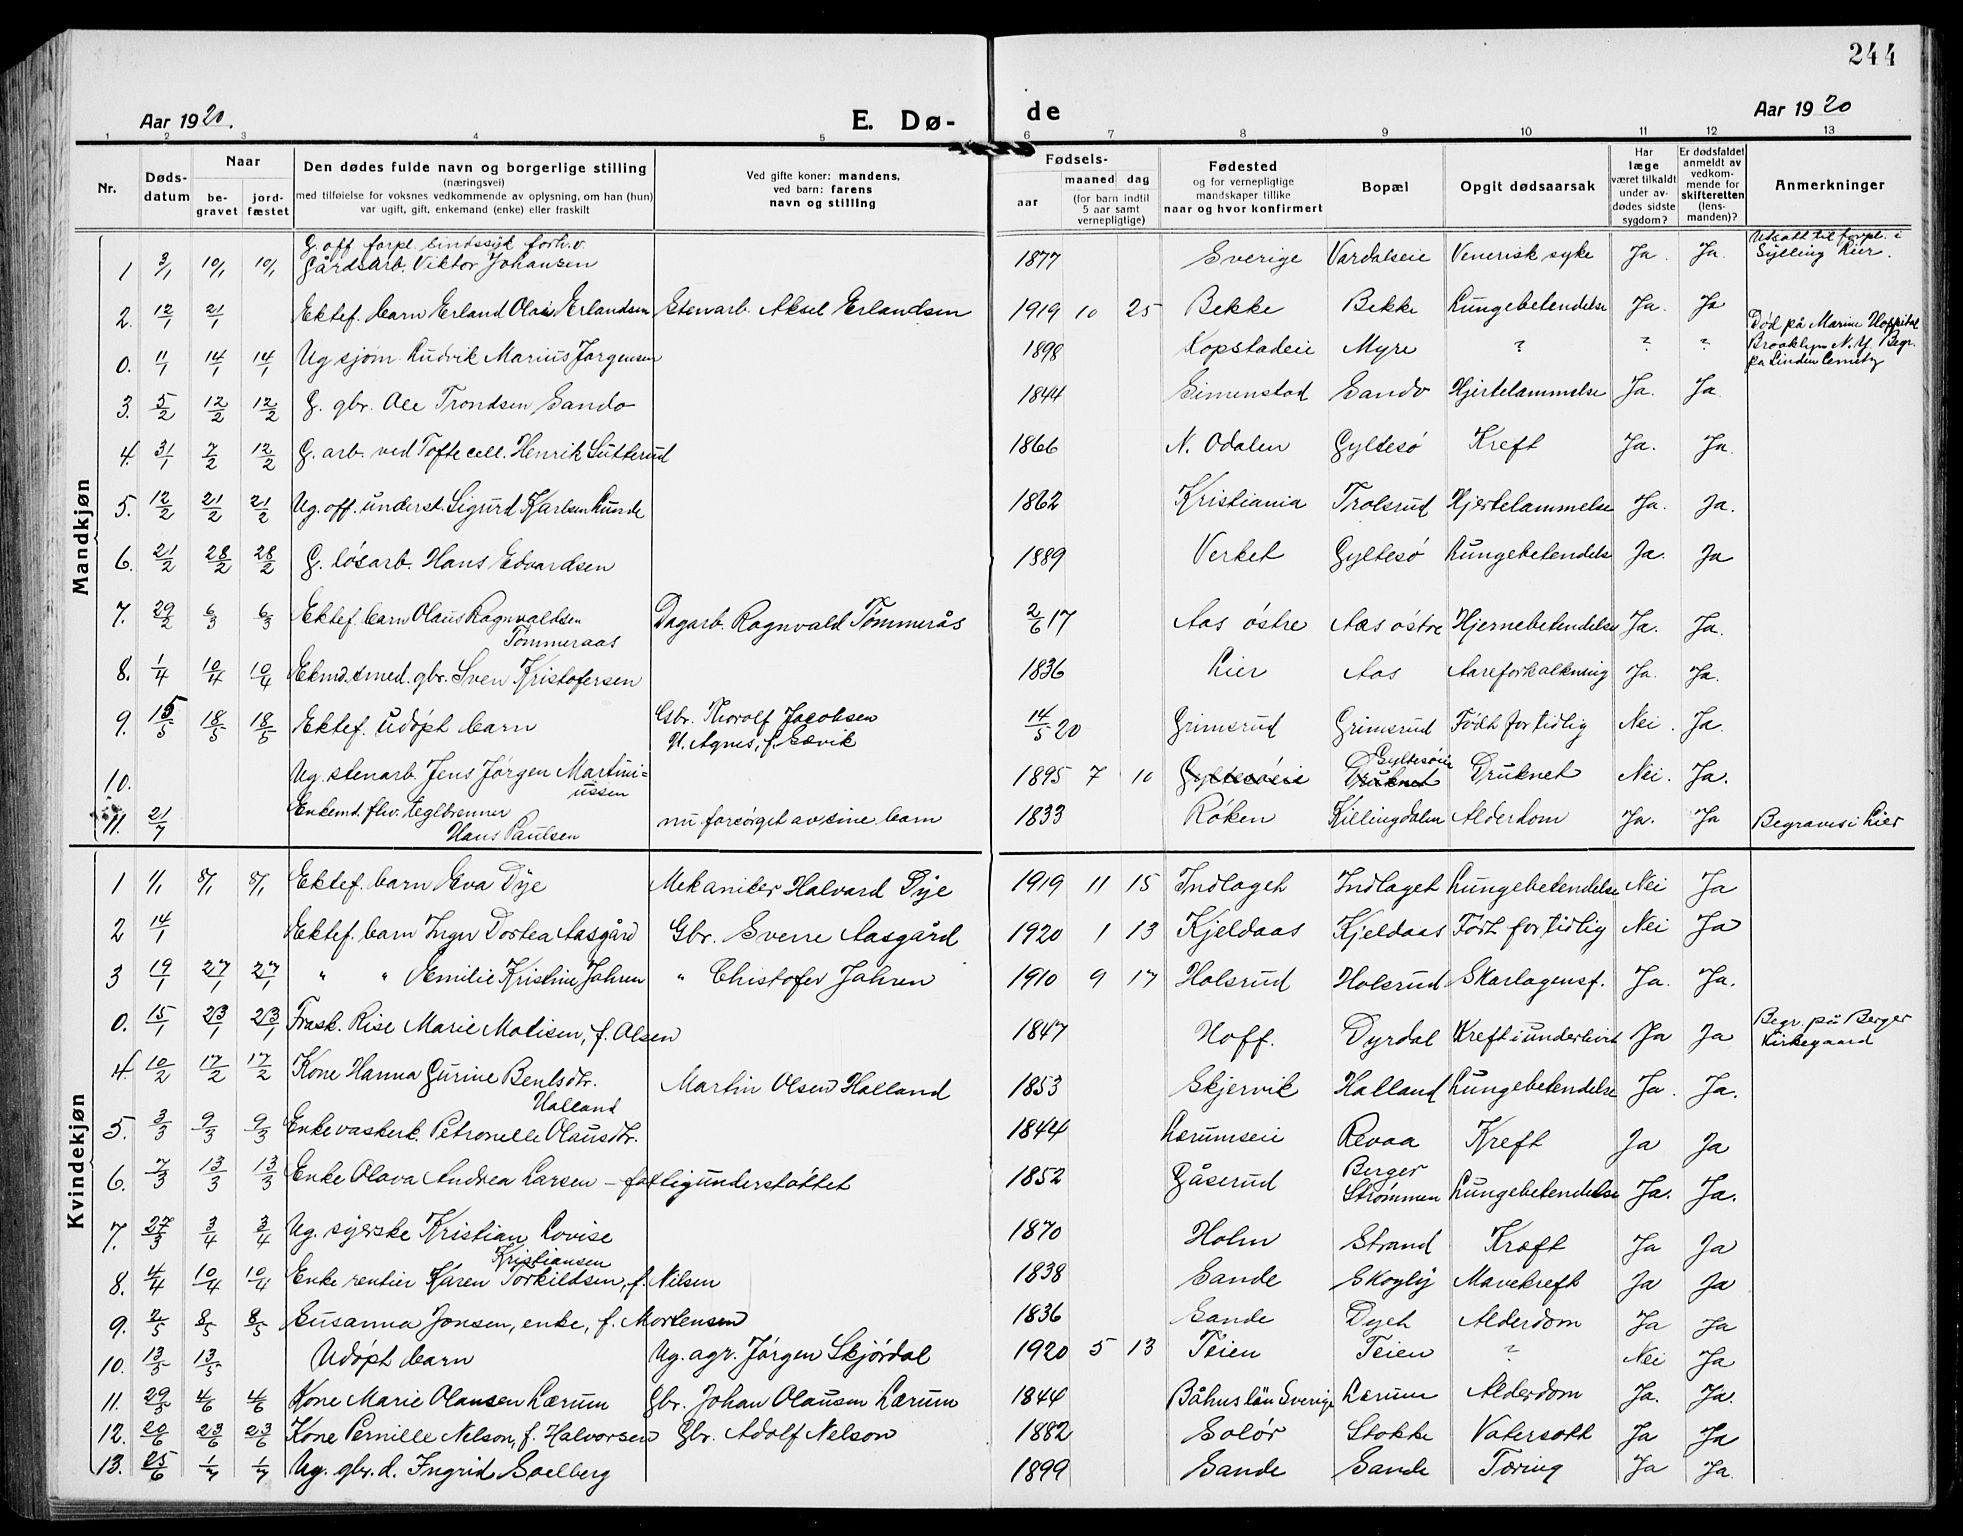 244
Aar 1920. E. Dø- de Aar 1920
1 2 3 4 5 6 7 8 9 10 11 12 13
Nr. Døds-datum Naar be-gravet jord-fæstet Den dødes fulde navn og borgerlige stilling (næringsvei) med tilføielse for voksnes vedkommende av oplysning, om han (hun) var ugift, gift, enkemand (enke) eller fraskilt Ved gifte koner: mandens, ved barn: farens navn og stilling Fødsels- aar maaned dag (for barn indtil 5 aar samt vernepligtige) Fødested og for vernepligtige mandskaper tillike naar og hvor konfirmert Bopæl Opgit dødsaarsak Har læge været tilkaldt under av-dødes sidste sygdom? Er dødsfaldet anmeldt av vedkom-mende for skifteretten (lens-manden)? Anmerkninger
Mandkjøn
1 3/1 10/1 10/1 G. off. forpl. sindssyk forh.v. Gårdsarb. Viktor Johansen 1877 Sverige Vardalseie Venerisk syke Ja. Ja. Utsatt til forpl. i Sylling Lier.
2. 12/1 21/1 Ektef. barn Erland Olai Erlandsen Stenarb. Aksel Erlandsen 1919 10 25 Bekke Bekke Lungebetendelse Ja. Ja
0. 11/1 14/1 14/1 Ug sjøm. Ludvik Marius Jørgensen 1898 Kopstadeie Myre ? ? ? Død på Marine Hospital Brooklyn N.Y. Begr. pa Linden Cemety
3. 5/2 12/2 12/2 G. gbr. Ole Trondsen Sando 1844 Simenstad Sando Hjertelammelse Ja. Ja.
4. 31/1 7/2 12/2 G. arb. ved Tofte cell. Henrik Sutterud 1866 N. Odalen Gyltesø Kreft Ja. Ja.
5. 12/2 21/2 21/2 Ug. off. underst. Sigurd Karlsen Lunde 1862 Kristiania Trolsrud Hjertelammelse Ja. Ja.
6. 21/2 28/2 28/2 G. løsarb. Hans Edvardsen 1889 Verket Gyltesø Lungebetendels Ja. Ja
7. 29/2 6/3 6/3 Ektef. barn Olaus Ragnvaldsen Tømmeraas Dagarb. Ragnvald Tømmerås 2/6 17 Aas østre Aas østre Hjernebetendelse Ja. Ja.
8. 1/4 10/4 10/4 Ekmd. smed. gbr. Sven Kristofersen 1836 Lier Aas Aareforkalkning Ja. Ja.
9. 15/5 18/5 18/5 Ektef. udøpt barn Gbr. Thorolf Jacobsen H. Agnes, f. Sævik 14/5 20 Grimsrud Grimsrud Født for tidlig Nei. Ja.
10. Ug. stenarb. Jens Jørgen Martini= ussen 1895 7 10 Gyltesøeie Gyltesøeie Druknet Druknet Nei. Ja.
11. 21/7 Enkemd. fhv. teglbrenner Hans Paulsen nu forsørget av sine barn 1833 Røken Killingdalen Alderdom Ja. Ja Begraves i Lier
Kvindekjøn
1 1/1 8/1 8/1 Ektef. barn Eva Dye Mekaniker Halvard Dye 1919 11 15 Indlaget Indlaget Lungebetendelse Nei Ja
2 14/1 Ektef. barn Inger Dortea Aasgård Gbr. Sverre Aasgård 1920 1 13 Kjeldaas Kjeldaas Født for tidlig Nei Ja
3 19/1 27/1 27/1 " " Emilie Kristine Jahren " Christofer Jahren 1910 9 17 Holsrud Holsrud Skarlagensf. Ja. Ja.
0. 15/1 23/1 23/1 Frask. Rise Marie Madisen, f. Olsen 1847 Hoff. Dyrdal Kreft i underlivet Ja Ja Begr. på Berger Kirkegaard
4. 10/2 17/2 17/2 Kone Hanna Gurine Bentsdtr. Halland Martin Olsen Halland 1853 Skjervik Halland Lungebetendelse Ja. Ja.
5. 3/3 9/3 9/3 Enke vaskerk. Petronelle Olausdtr. 1844 Lærumseie Revaa Kreft Ja Ja
6. 7/3 13/3 13/3 Enke Olava Andrea Larsen – fattigunderstøttet 1852 Gåserud Berger Strømmen Lungebetendelse Ja. Ja.
7. 27/3 3/4 3/4 Ug. syerske Kristian Lovise Kristiansen 1870 Holm Strand Kræft Ja Ja
8. 4/4 10/4 10/4 Enke rentier Karen Torkildsen, f. Nilsen 1838 Sande Skogly Mavekreft Ja Ja
9. 2/5 8/5 8/5 Susanna Jonsen, enke, f. Mortensen 1836 Sande Dyet Alderdom Ja Ja
10. 13/5 13/5 Udøpt barn Ug. agr. Jørgen Skjørdal 1920 5 13 Teien Teien ? Nei Ja
11. 29/5 4/6 4/6 Kone Marie Olausen Lærum Gbr. Johan Olausen Lærum 1844 Båhuslän Sverige Lærum Alderdom Ja. Ja.
12. 20/6 23/6 23/6 Kone Pernille Nelson, f. Halvorsen Gbr. Adolf Nelson 1882 Solør Stokke Vatersott Ja Ja
13. 25/6 1/7 1/7 Ug. gbr.d. Ingrid Soelberg 1899 Sande Sande Tæring Ja Ja.